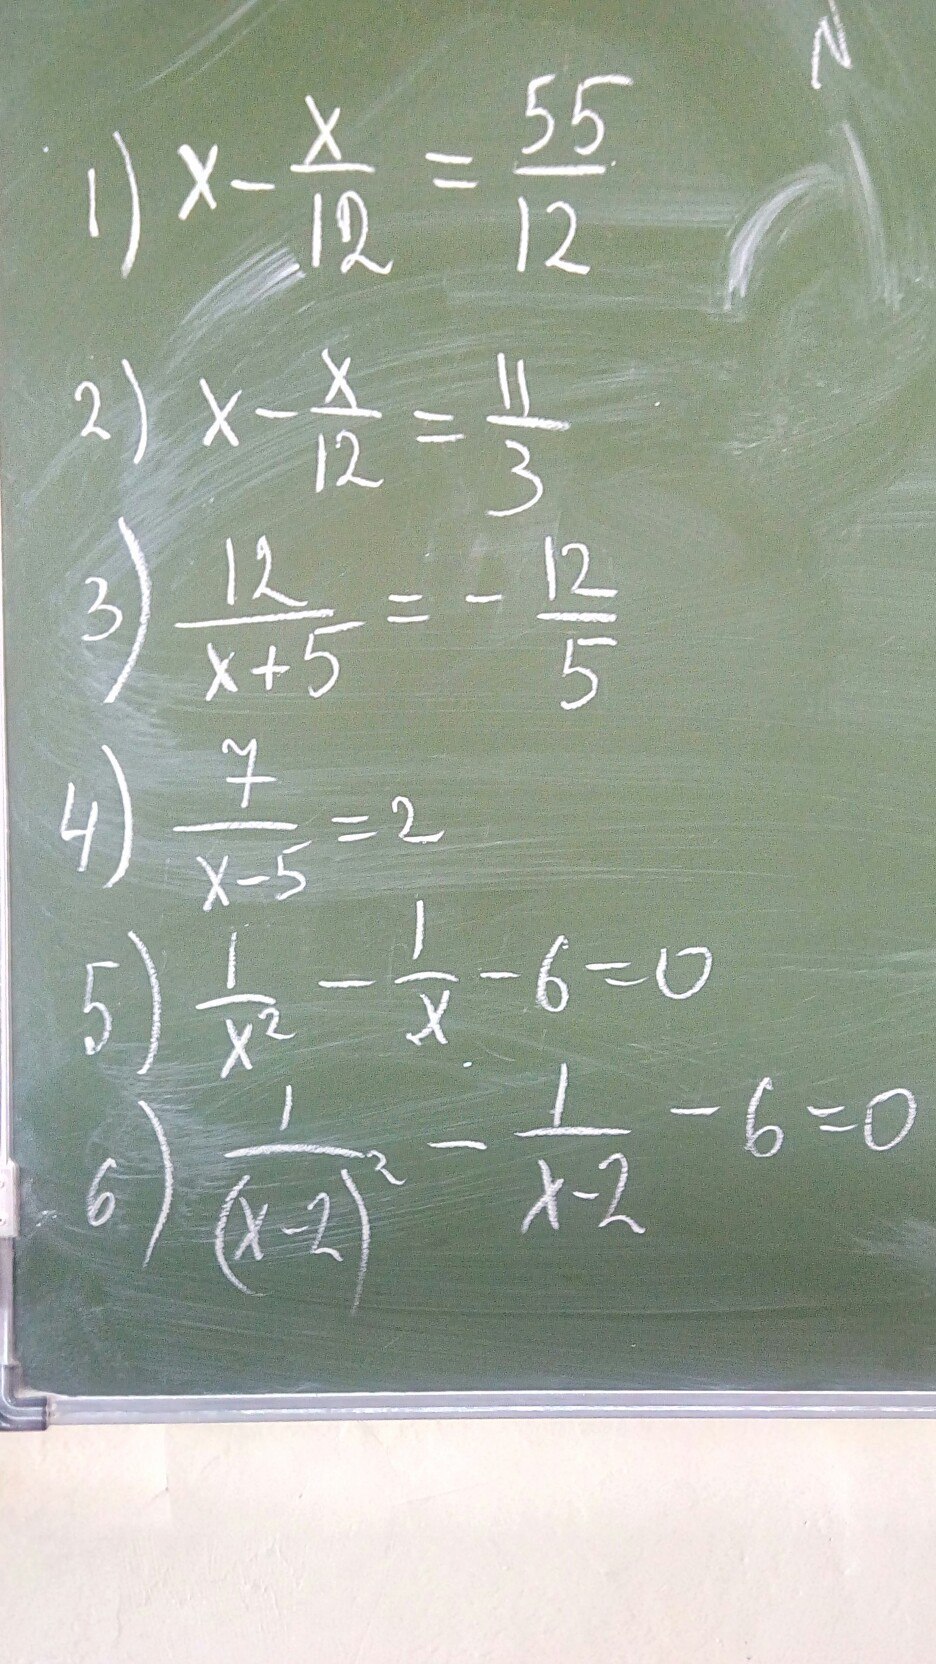 N
1) x - x/12 = 55/12
2) x - x/12 = 11/3
3) 12/(x+5) = - 12/5
4) 7/(x-5) = 2
5) 1/x² - 1/x - 6 = 0
6) 1/(x-2)² - 1/(x-2) - 6 = 0